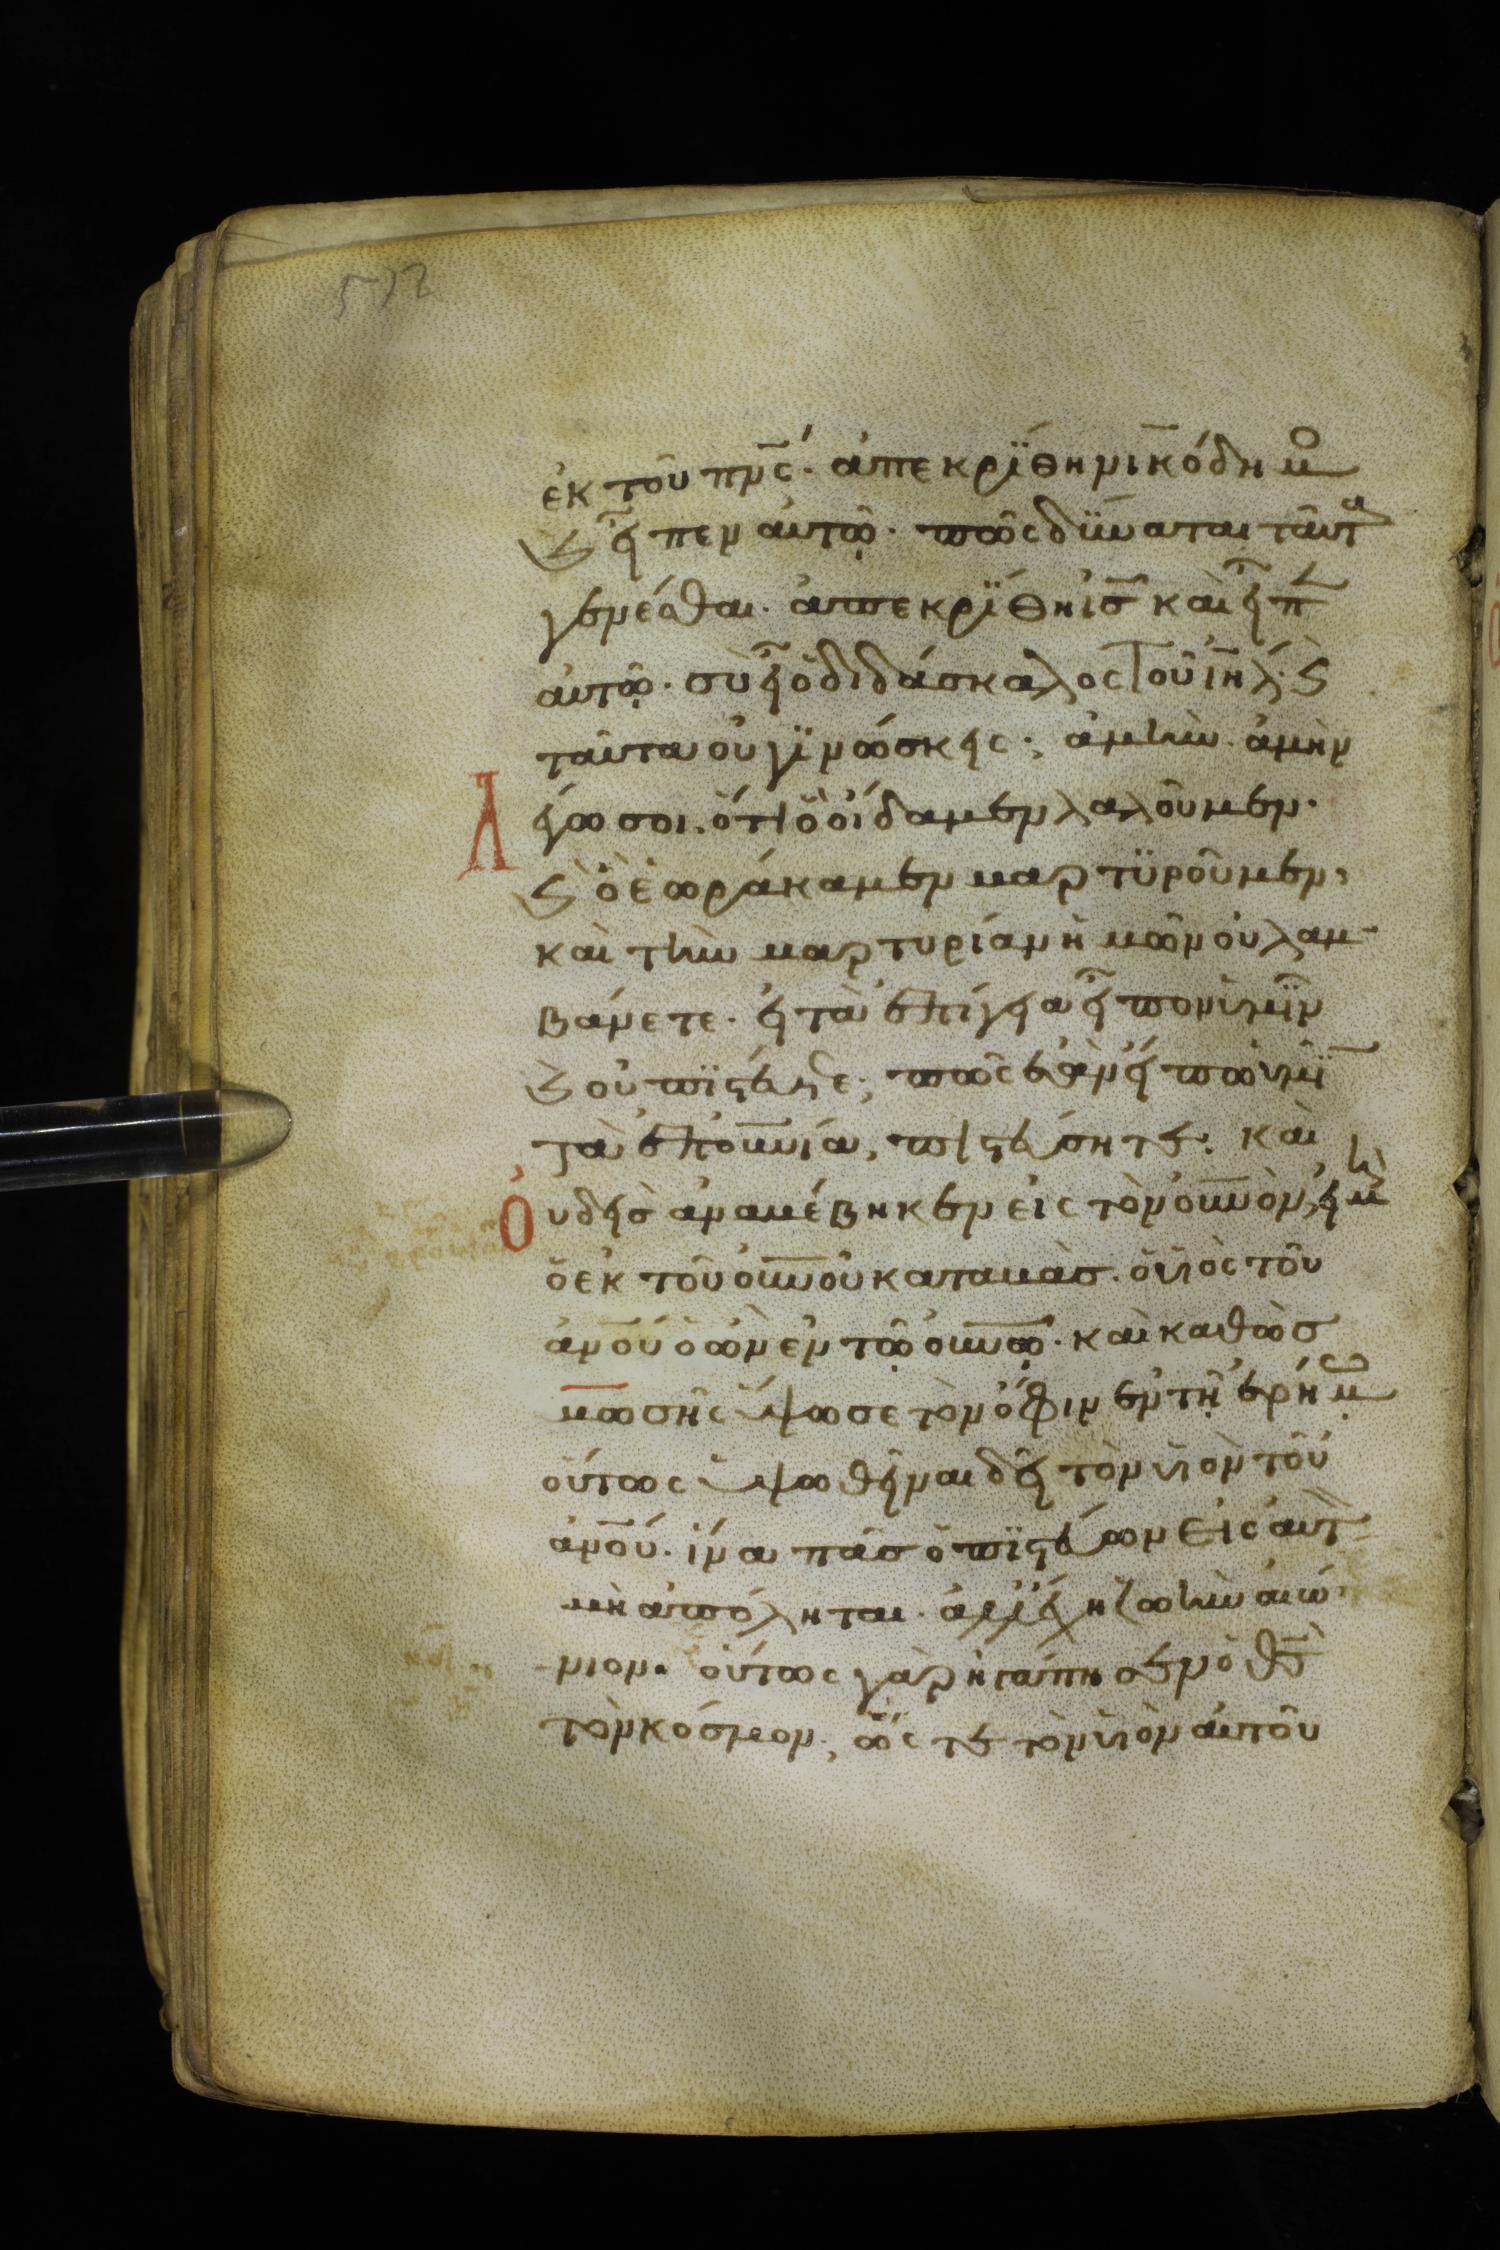 572
ἐκ τοῦ πν̅ς· ἀπεκρίθη νικόδημο
ϗ εἶπεν αὐτῶ· πῶς δύναται ταῦτα
γενέσθαι· ἀπεκρίθη ι̅ς̅ καὶ εἶπ
αὐτῶ· σὺ εἶ ὁ διδάσκαλος τοῦ ι̅η̅λ· ϗ
ταῦτα οὐ γινώσκεις; ἀμὴν ἀμὴν
λέγω σοι· ὅτι ὃ οἴδαμεν λαλοῦμεν·
ϗ ὃ ἑωράκαμεν μαρτυροῦμεν,
καὶ τὴν μαρτυρίαν ἡμῶν οὐ λαμ
βάνετε· εἰ τὰ ἐπίγεια εἶπον ὑμῖν
ϗ οὐ πιστεύετε; πῶς ἐὰν εἴπω ὑμῖ
τὰ ἐπου̅νια, πιστεύσητε; καὶ
οὐδεὶς ἀναβέβηκεν εἰς τὸν ου̅νὸν, εἰ μὴ
ὁ ἐκ τοῦ ου̅νοῦ καταβάς· ὁ υἱὸς τοῦ
ἀν̅ου ὁ ὢν ἐν τῶ ου̅νῶ· καὶ καθὼς
μωσῆς ὕψωσε τὸν ὄφιν ἐν τῆ ἐρήμω
οὕτως ὑψωθῆναι δεῖ τὸν υἱὸν τοῦ
ἀν̅ου· ἵνα πᾶς ὁ πιστεύων εἰς αὐτ
μὴ ἀπόληται· ἀλλ' ἔχη ζωὴν αἰώ
νιον· οὕτως γὰρ ἠγάπησεν ὁ θ̅ς̅
τὸν κόσμον, ὥστε τὸν υἱὸν αὐτοῦ